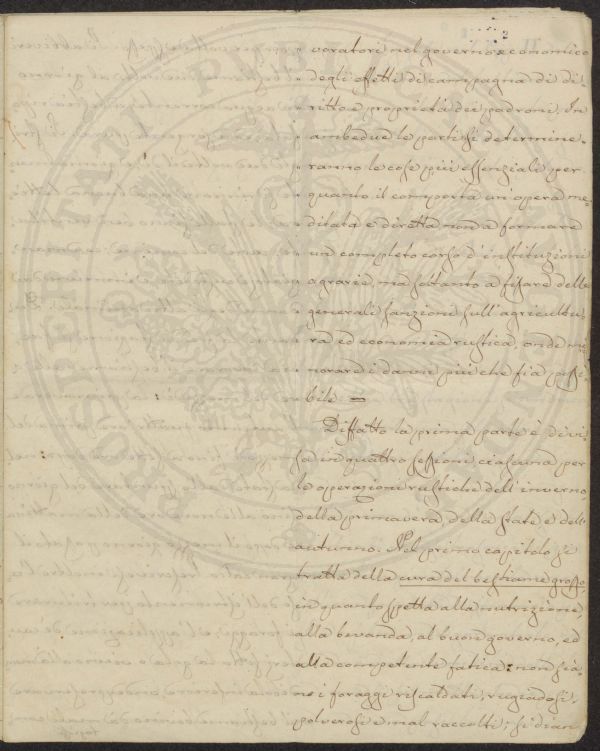 voratori nel governo economico
degli effetti di campagna di di-
ritto e proprietà dei padroni. In
ambedue le parti si determine-
ranno le cose più essenziali per
quanto il comporta un'opera me-
ditata e diretta non a formare
un completo corso d'instituzioni
agrarie, ma soltanto a fissare delle
generali sanzioni sull'agricoltu-
ra ed economia rustica, onde mi-
norare i danni più che fia possi-
bile. =
Diffatto la prima parte è divi-
sa in quattro sessioni, ciascuna per
le operazioni rustiche dell'inverno
della primavera, della state e dell'
autunno. Nel primo capitolo si
tratta della cura del bestiame grosso,
in quanto spetta alla nutrizione,
alla bevanda, al buon governo, ed
alla competente fatica: non sia-
no i foraggi riscaldati, rugiadosi,
polverosi e mal raccolti; si dian
PROSPERITATI PUBLICAE